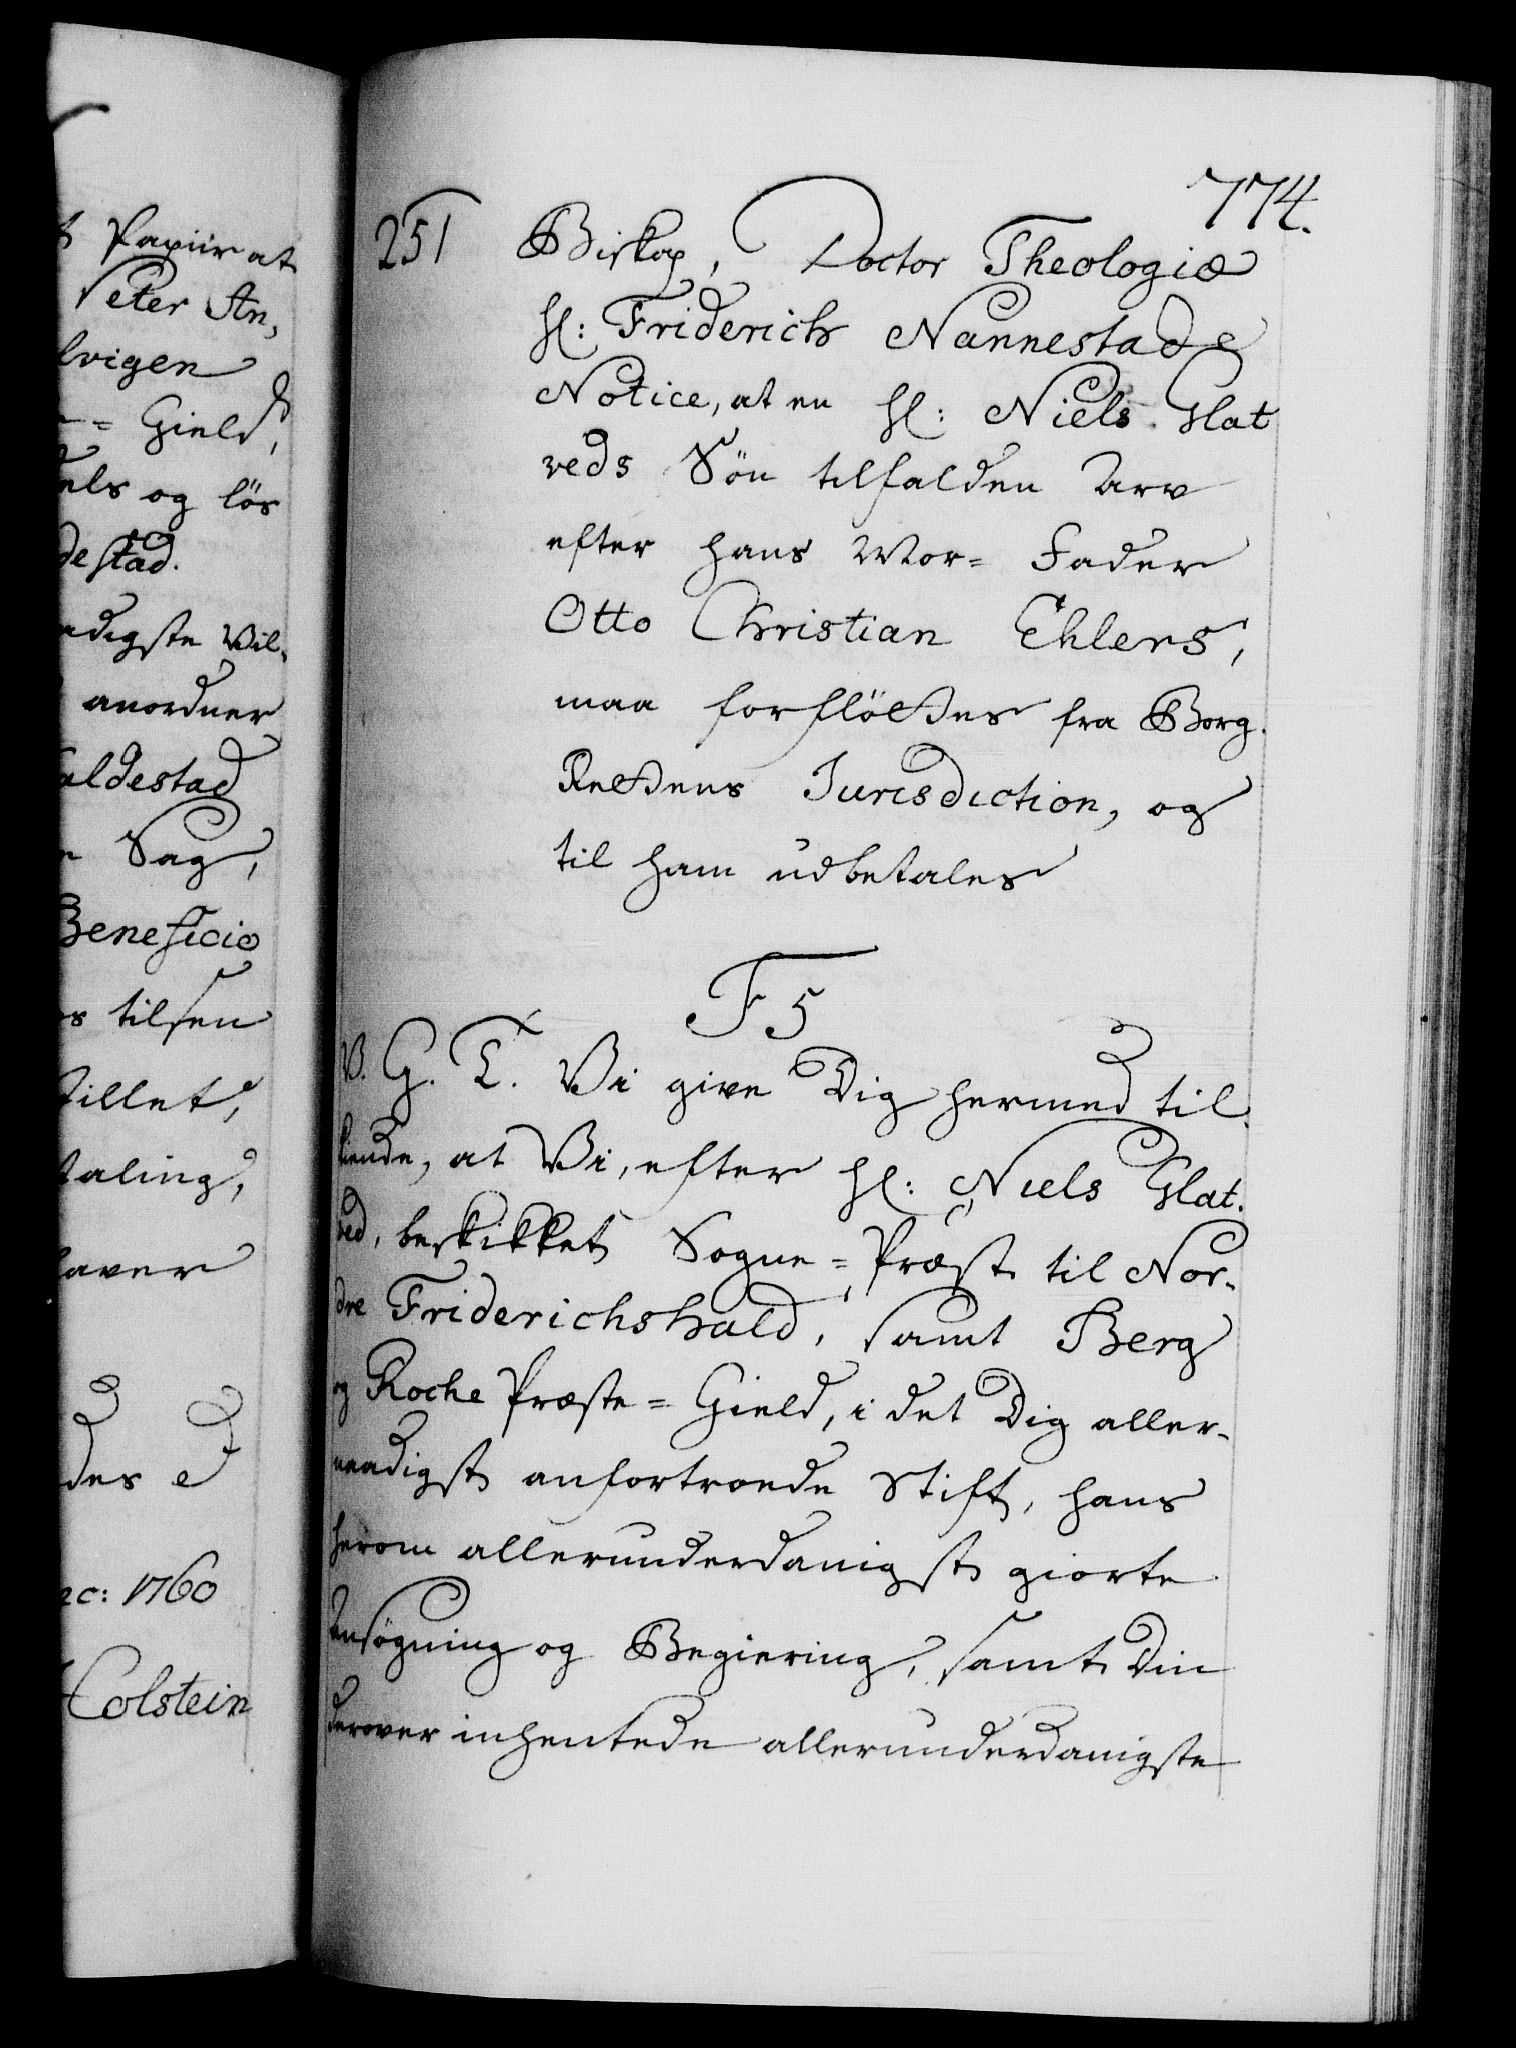 t Papiir at
Peter An,
lvigen
= Gield,
els og lös
destad.
adigste Vil-
anordner
aldestad
Sag,
Beneficio
tilsen
stillet,
taling,
laver
des
ec: 1760
Holstein
774.
251
Biskop, Doctor Theologiæ
Hl: Friderich Nannestads
Notice, at en Hl: Niels Glat
veds Sön tilfalden Arv
efter hans Mor= Fader
Otto Christian Ehlers,
maa forflöttes fra Borg.
Rettens Jurisdiction, og
til ham udbetales
F5
V. G. T. Vi give Dig hermed til
kiende, at Vi, efter Hl: Niels Glat.
ved, beskikket Sogne= Præst til Nor-
dre Friderichshald, samt Berg
og Roche Præste= Gield, i det Dig aller-
naadigst anfortroede Stift, hans
herom allerunderdanigst giorte
Ansögning og Begiering, samt Din
derover inhentede allerunderdanigste